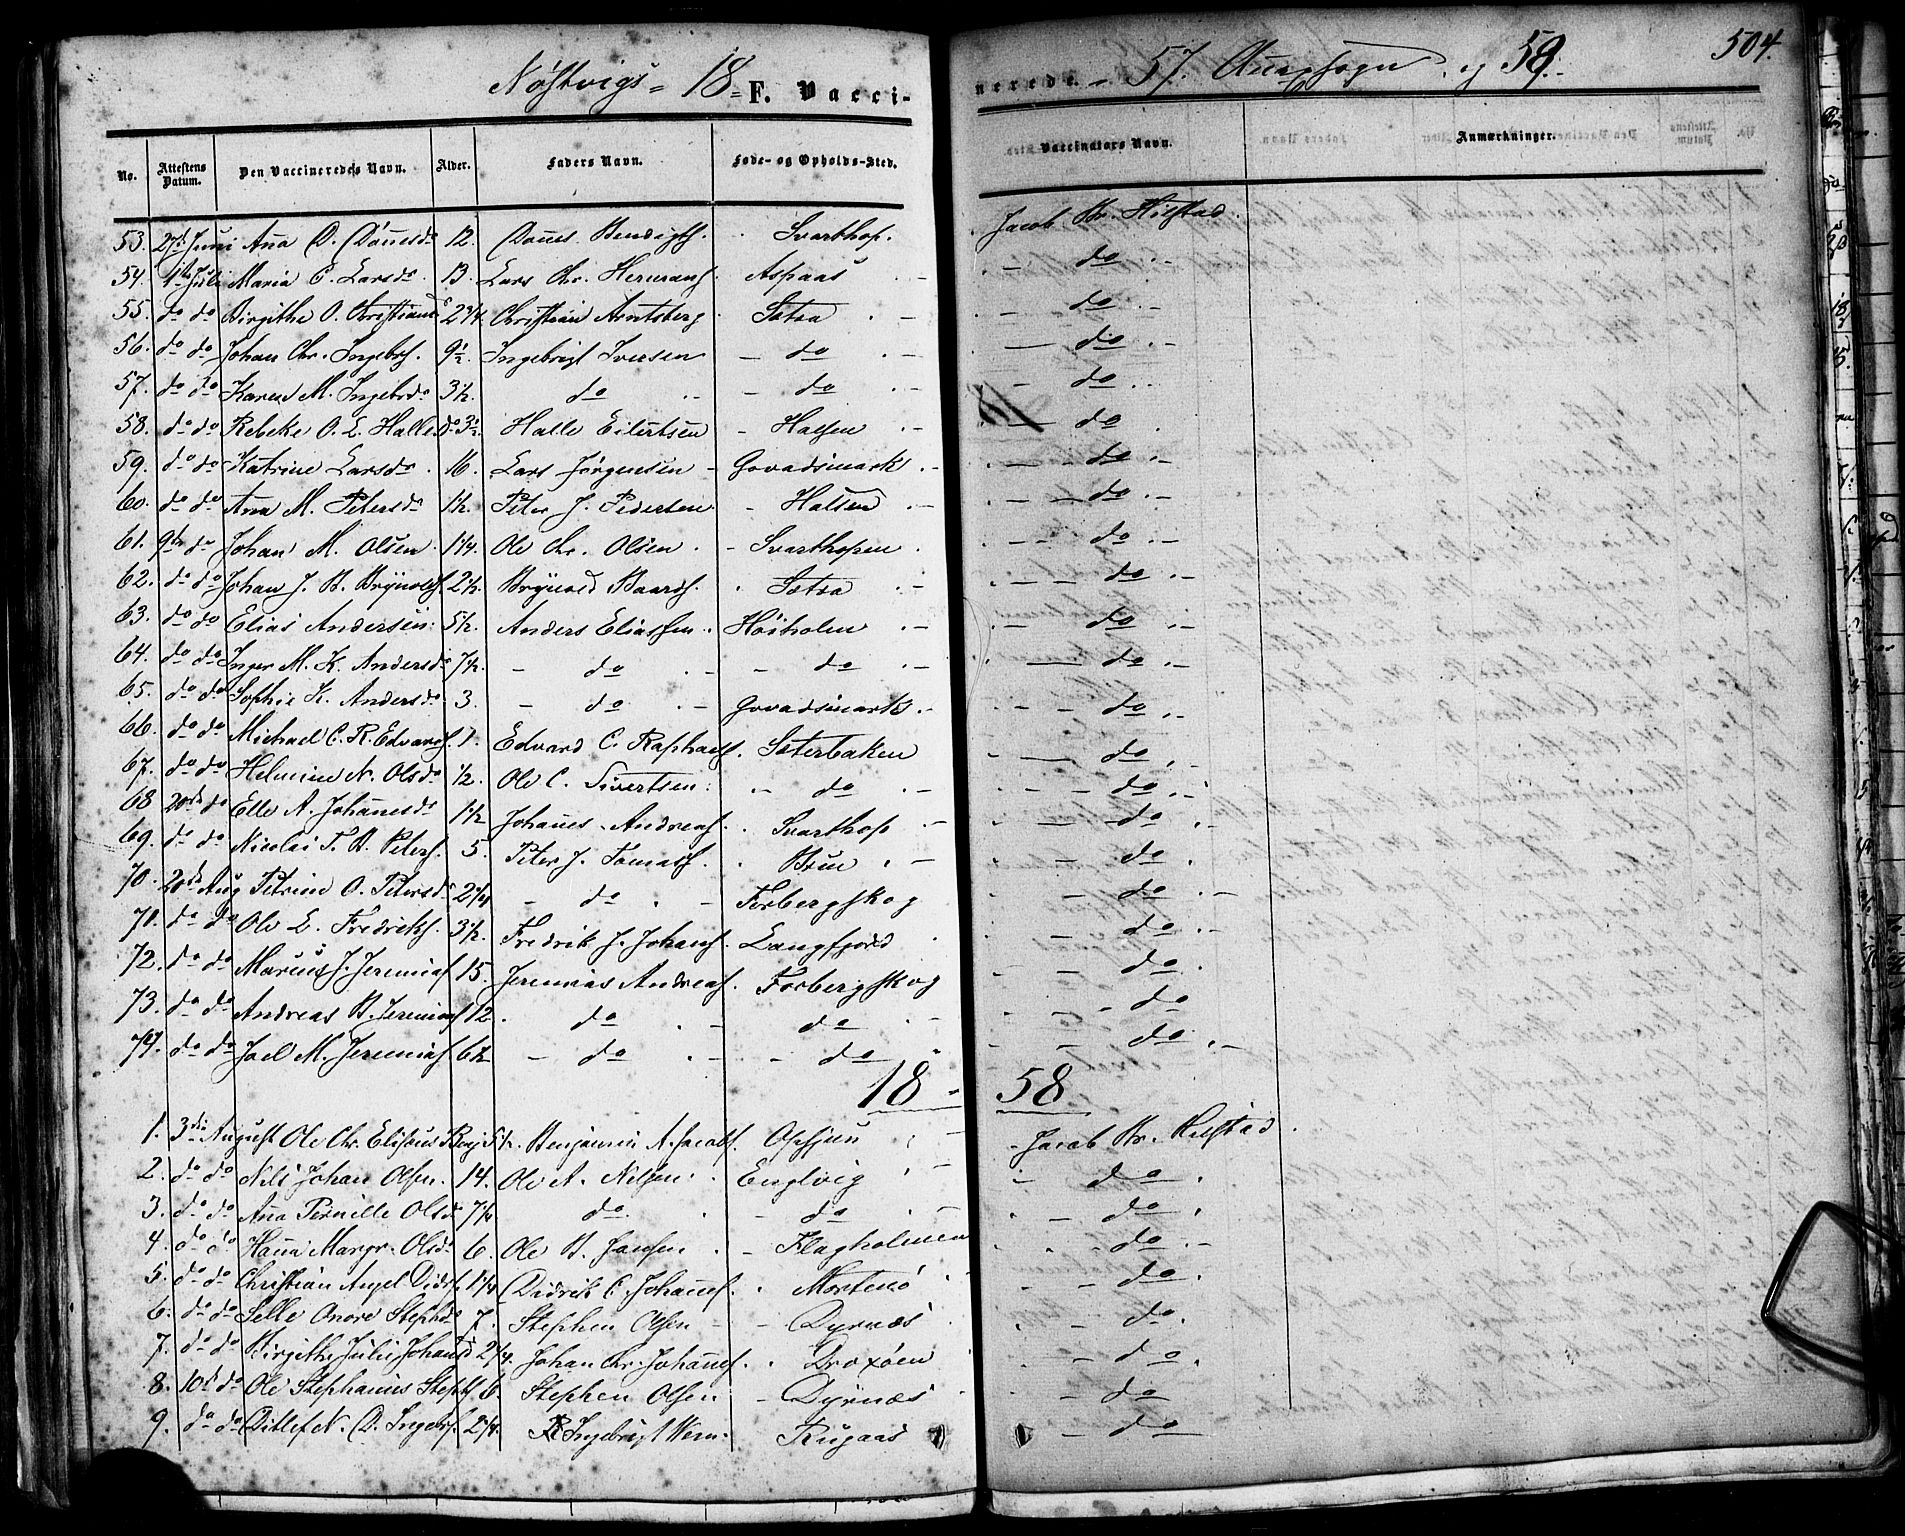 Nøstvigs - 18 - F. Vacci- nerede. - 57. Anexsogn. og 58. 504.
No. Attestens Datum. Den Vaccineredes Navn. Alder. Faders Navn. Føde- og Opholds-Sted. Vaccinators Navn. Anmærkninger.
53. 27de Juni Ana D. Dønesdr 12. Dønes Bendigts. Svarthop. Jacob Br. Hilstad.
54. 1ste Juli Maria C. Larsdr. 13. Lars Chr. Hermans. Aspaas - do
55. do do Birgithe O. Christiansd 2 3/4. Christian Arntsberg Sætra - do
56. do do Johan Chr. Ingebrs. 9 1/2. Ingebrigt Iversen - do - do
57. do do Karen M. Ingebrdr 3 1/2. do - do - do
58. do do Rebeke O. E. Halledr 3 1/2. Halle Eilertsen - Halsen - do
59. do do Katrine Larsdr. 16. Lars Jørgensen - Govadsmark - do
60. do do Ana M. Petersdr 1 1/2. Peter J. Pedersen - Halsen - do
61. 9de do Johan M. Olsen 1 1/4. Ole Chr. Olsen. - Svarthopen. - do
62. do do Johan J. B. Brynolds. 2 1/2. Brynold Baards. Sætra - do
63. do do Elias Andersen. 5 1/2. Anders Eliassen. Høiholen - do
64. do do Inger M. K. Andersdr 7 1/2. - do - do - do
65. do do Sophie K. Andersdr 3. - do - Govadsmark - do
66. do do Michael C. R. Edvards. 1. Edvard C. Raphaels. Sæterbakken - do
67. do do Helmine N. Olsdr 1/2. Ole C. Sivertsen. do - do
68 20de do Elle A. Johanesdr 1 1/2 Johanes Andreas. Svarthop - do
69. do do Nicolai T. B. Peters. 5. Peter J. Tomass. Brun - do
70. 20de Aug Petrine O. Petersdr 2 1/4 - do - Forbergskog - do
71. do do Ole E. Fredriks. 3 1/2. Fredrik J. Johans. Langfjord - do
72. do do Marcus J. Jeremias 15. Jeremias Andreas. Forbergskog - do
73. do do Andreas B. Jeremias 12. do - do - do
74. do do Joel M. Jeremias 6 1/2 - do - do - do
18 - 58
1. 3die August Ole Chr. Elisæus Benj. Benjamin A. Jacobs. Opsjun - Jacob Br. Hilstad.
2. do do Nils Johan Olsen. 14. Ole A. Nilsen. Englvig - do
3. do do Ana Pernille Olsdr 7 1/4 do - do - do
4. do do Hana Margr. Olsdr 6. Ole B. Jansen. - Flagholmen - do
5. do do Christian Angel Didrs. 1 1/4 Didrik C. Johans. Mortensø - do
6. do do Selle Onore Stephdr 7. Stephen Olsen - Dyrnæs - do
7. do do Birgithe Julie Johansd 2 1/4. Johan Chr. Johans. Droxøen - do
8. 10d do Ole Stephanus Steph. 6. Stephen Olsen - Dyrnæs - do
9. do do Ditlef N. D. Ingebrs. 2 1/4. Ingebrigt Wern. Rugaas - do